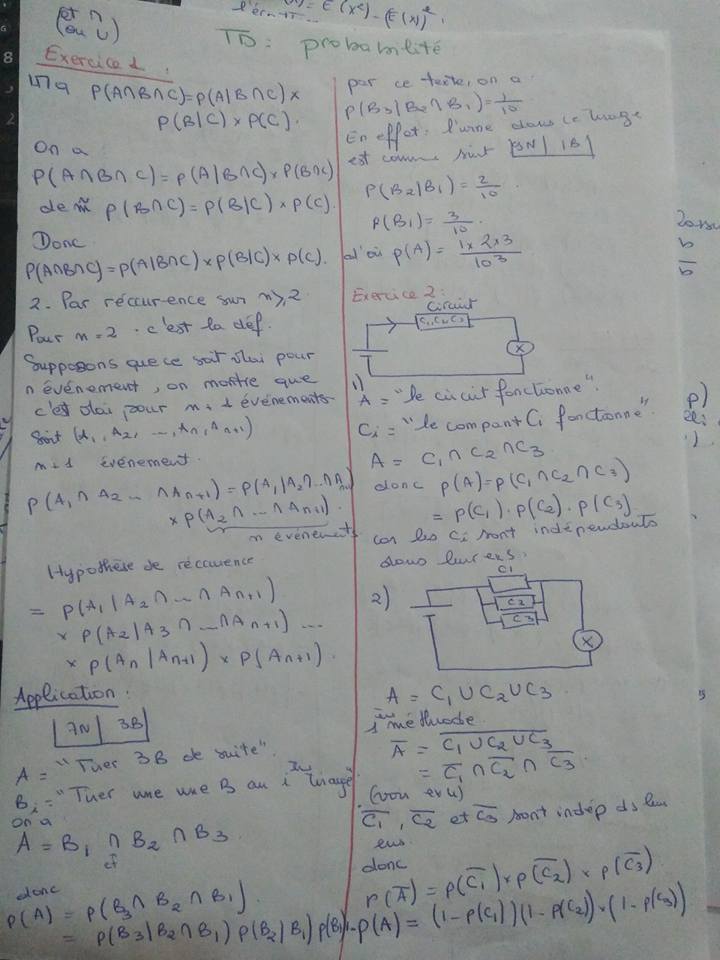 (et ∩
(ou ∪)
= E(X²) - (E(X))².
TD: probabilité
Exercice 1.
1) Mq P(A∩B∩C)=P(A|B∩C)×
P(B|C)×P(C).
On a
P(A∩B∩C)=P(A|B∩C)×P(B∩C)
de m̃ P(B∩C)=P(B|C)×P(C).
Donc
P(A∩B∩C)=P(A|B∩C)×P(B|C)×P(C).
2. Par réccurence sur n≥2.
Pour n=2 . c'est la déf.
Supposons que ce soit vrai pour
n événement, on montre que
c'est vrai pour n+1 événements
Soit (A₁, A₂, ..., Aₙ, Aₙ₊₁)
n+1 événement.
P(A₁∩A₂...∩Aₙ₊₁)=P(A₁|A₂∩..∩Aₙ₊₁)
×P(A₂∩...∩Aₙ₊₁)
n événements
Hypothèse de réccurence
= P(A₁|A₂∩...∩Aₙ₊₁)
× P(A₂|A₃∩...∩Aₙ₊₁)...
× P(Aₙ|Aₙ₊₁) × P(Aₙ₊₁).
Application.
7N | 3B
A = "Tirer 3B de suite".
Bᵢ = "Tirer une une B au i tirage"
on a
A = B₁ ∩ B₂ ∩ B₃
et
donc
P(A) = P(B₃∩B₂∩B₁)
= P(B₃|B₂∩B₁) P(B₂|B₁) P(B₁)
par ce texte, on a
P(B₃|B₂∩B₁)=1/10
En effet: l'urne dans ce tirage
est comme suit | 1B
P(B₂|B₁) = 2/10
P(B₁) = 3/10.
d'où P(A) = 1×2×3/10³
Exercice 2:
Circuit
C₁,C₂,C₃
1)
A = "le circuit fonctionne".
Cᵢ = "le compant Cᵢ fonctionne".
A = C₁∩C₂∩C₃
donc P(A)=P(C₁∩C₂∩C₃)
= P(C₁).P(C₂).P(C₃)
car les Cᵢ sont indépendants
dans leur ens.
2)
C1
C2
C3
A = C₁∪C₂∪C₃.
1ère méthode
A̅ = C₁∪C₂∪C₃
= C̅₁∩C̅₂∩C̅₃
C̅₁, C̅₂ et C̅₃ sont indép ds leur
ens
donc
P(A̅) = P(C̅₁)×P(C̅₂)×P(C̅₃)
1-P(A) = (1-P(C₁))(1-P(C₂))×(1-P(C₃))